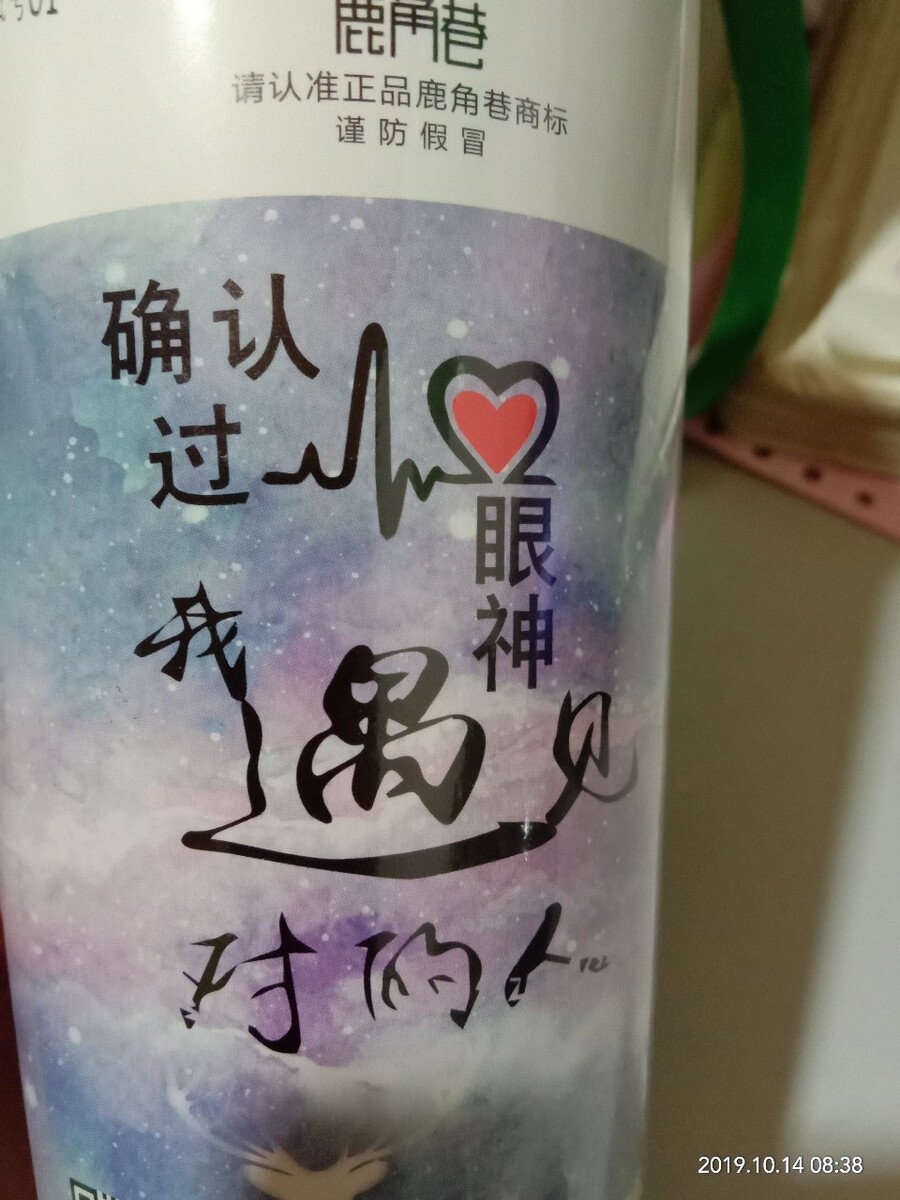 鹿角巷
请认准正品鹿角巷商标
谨防假冒
确认
过
眼
神
我
遇见
对的人
2019.10.14 08:38